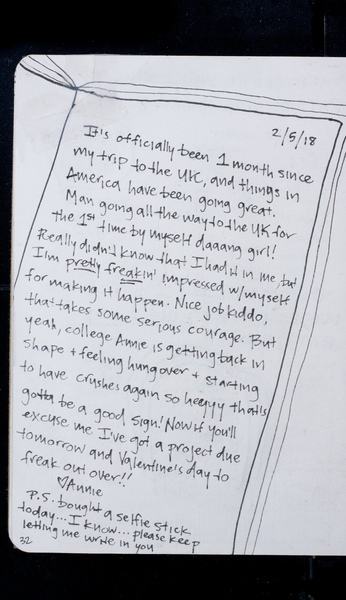 2/5/18
It's officially been 1 month since
my trip to the UK, and things in
America have been going great.
Man going all the way to the UK for
the 1st time by myself daaang girl!
Really didn't know that I had it in me, but
I'm pretty freakin' impressed w/myself
for making it happen. Nice job kiddo,
that takes some serious courage. But
yeah, college Annie is getting back in
shape + feeling hungover + starting
to have crushes again so heyyy that's
gotta be a good sign! Now if you'll
excuse me I've got a project due
tomorrow and Valentine's day to
freak out over!!
♡Annie
P.S. bought a selfie stick
today... I know... please keep
letting me write in you
32